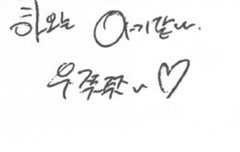 하와는 아기같다.
우쭈쭈~ ♡